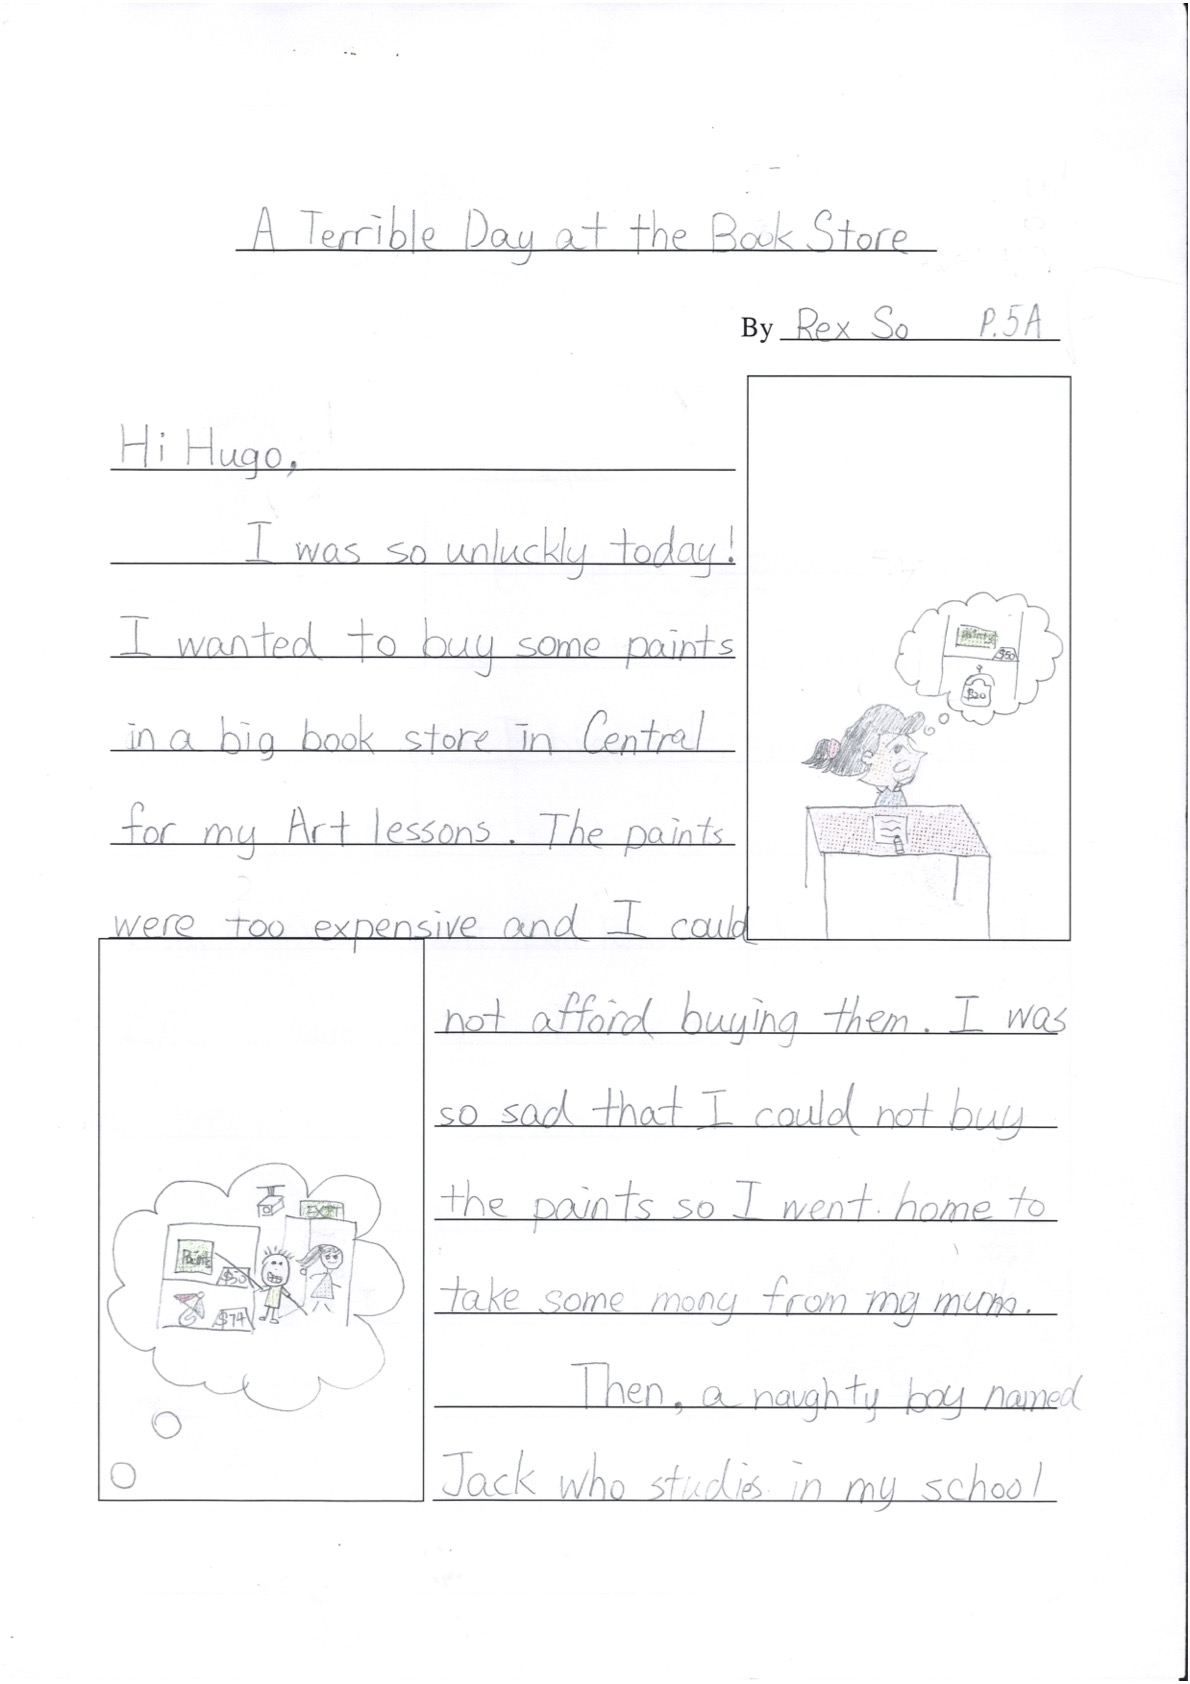 A Terrible Day at the Book Store
By Rex So P.5A
Hi Hugo,
I was so unluckly today!
I wanted to buy some paints
in a big book store in Central
for my Art lessons. The paints
were too expensive and I could
Paints
$50
$20
not afford buying them. I was
so sad that I could not buy
the paints so I went home to
take some mony from my mum.
Then, a naughty boy named
Jack who studies in my school
EXIT
Paints
$50
$74